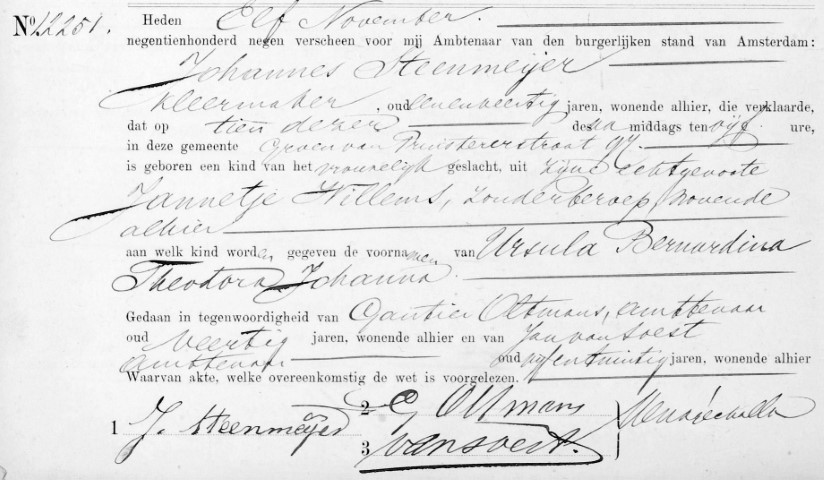 No. 12251. Heden Elf November.
negentienhonderd negen verscheen voor mij Ambtenaar van den burgerlijken stand van Amsterdam:
Johannes Steenmeijer
kleermaker, oud eenenveertig jaren, wonende alhier, die verklaarde,
dat op tien dezer des na middags ten vijf ure,
in deze gemeente Groen van Prinstererstraat 97.
is geboren een kind van het vrouwelijk geslacht, uit zijne echtgenoote
Jannetje Willems, zonder beroep, wonende
alhier
aan welk kind worden gegeven de voornamen van Ursula Bernardina
Theodora Johanna.
Gedaan in tegenwoordigheid van Oltmans, ambtenaar
oud veertig jaren, wonende alhier en van Jan van Soest
ambtenaar oud jaren, wonende alhier
Waarvan akte, welke overeenkomstig de wet is voorgelezen.
1 J. Steenmeijer 2 G Oltmans
3 van Soest.